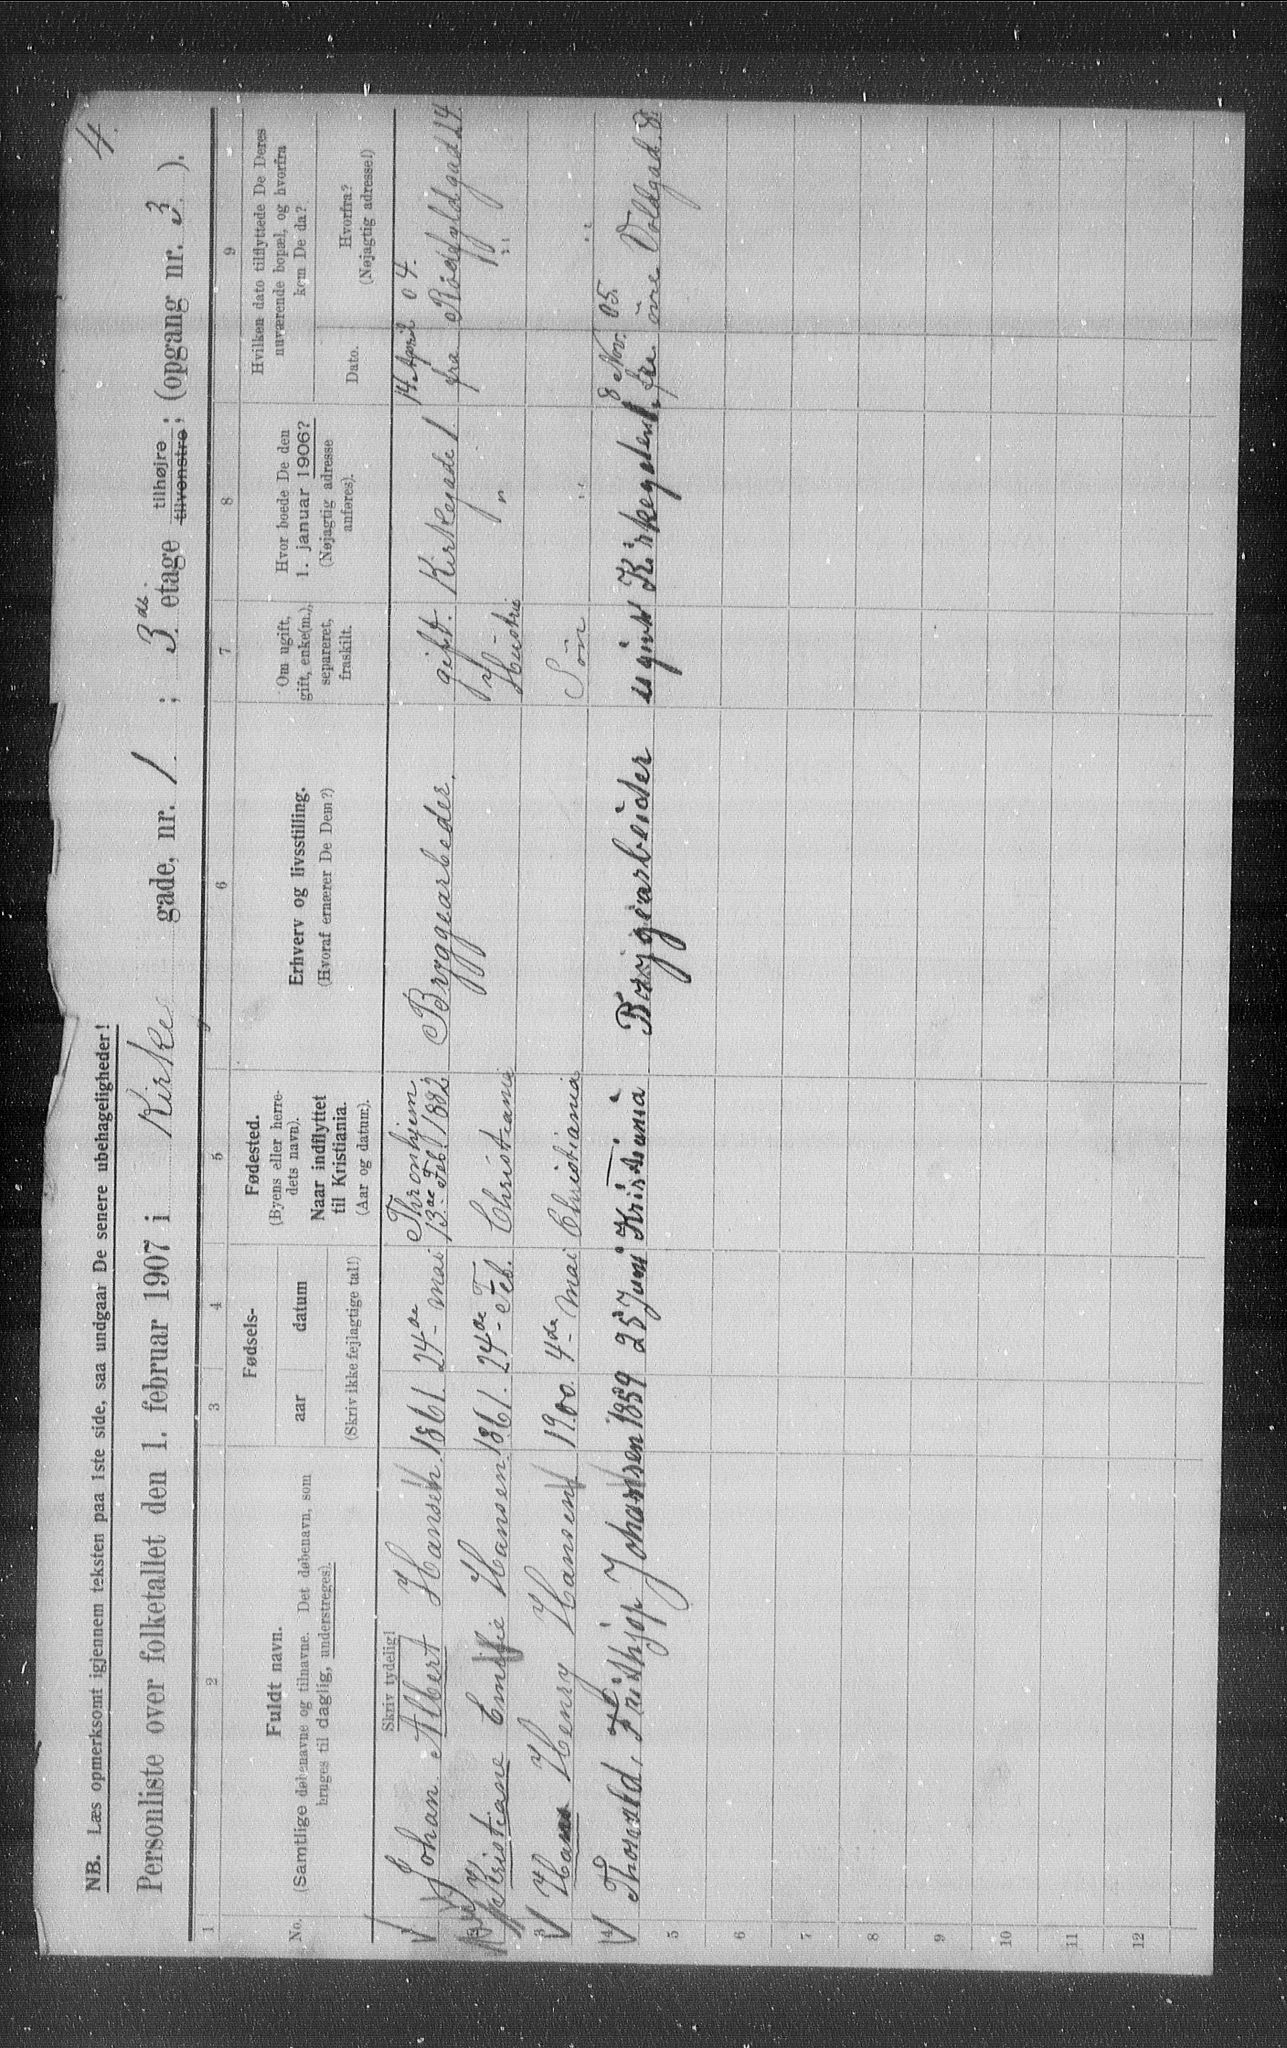 4.
NB. Læs opmerksomt igjennem teksten paa 1ste side, saa undgaar De senere ubehageligheder!
Personliste over folketallet den 1. februar 1907 i Kirke gade, nr. 1 ; 3de etage tilhøjre tilvenstre ; (opgang nr. 3 ).
1 2 3 4 5 6 7 8 9
No.
Fuldt navn.
(Samtlige døbenavne og tilnavne. Det døbenavn, som
bruges til daglig, understreges).
Fødsels-
aar datum
(Skriv ikke fejlagtige tal!)
Fødested.
(Byens eller herre-
dets navn).
Naar indflyttet
til Kristiania.
(Aar og datum).
Erhverv og livsstilling.
(Hvoraf ernærer De Dem?)
Om ugift,
gift, enke(m.),
separeret,
fraskilt.
Hvor boede De den
1. januar 1906?
(Nøjagtig adresse
anføres).
Hvilken dato tilflyttede De Deres
nuværende bopæl, og hvorfra
kom De da?
Dato.
Hvorfra?
(Nøjagtig adresse!)
Skriv tydelig!
1 Johan Albert Hansen 1861. 24de mai Thronhjem 13de Feb 1882 Bryggearbeder. gift. Kirkegade 1. 14 April 04. fra Rodefyldgad 24
2 Kristiane Emilie Hansen 1861. 24de Feb. Christiania Hustru " "
3 Hans Henry Hansen 1900. 4de mai Christiania Søn " "
4 Thorvald Frithjof Johansen 1859 25 Juni Kristiania Bryggearbeider ugivt Kirkegaten 1. 8 Nov. 05. fra øvre Voldgad. 8.
5
6
7
8
9
10
11
12